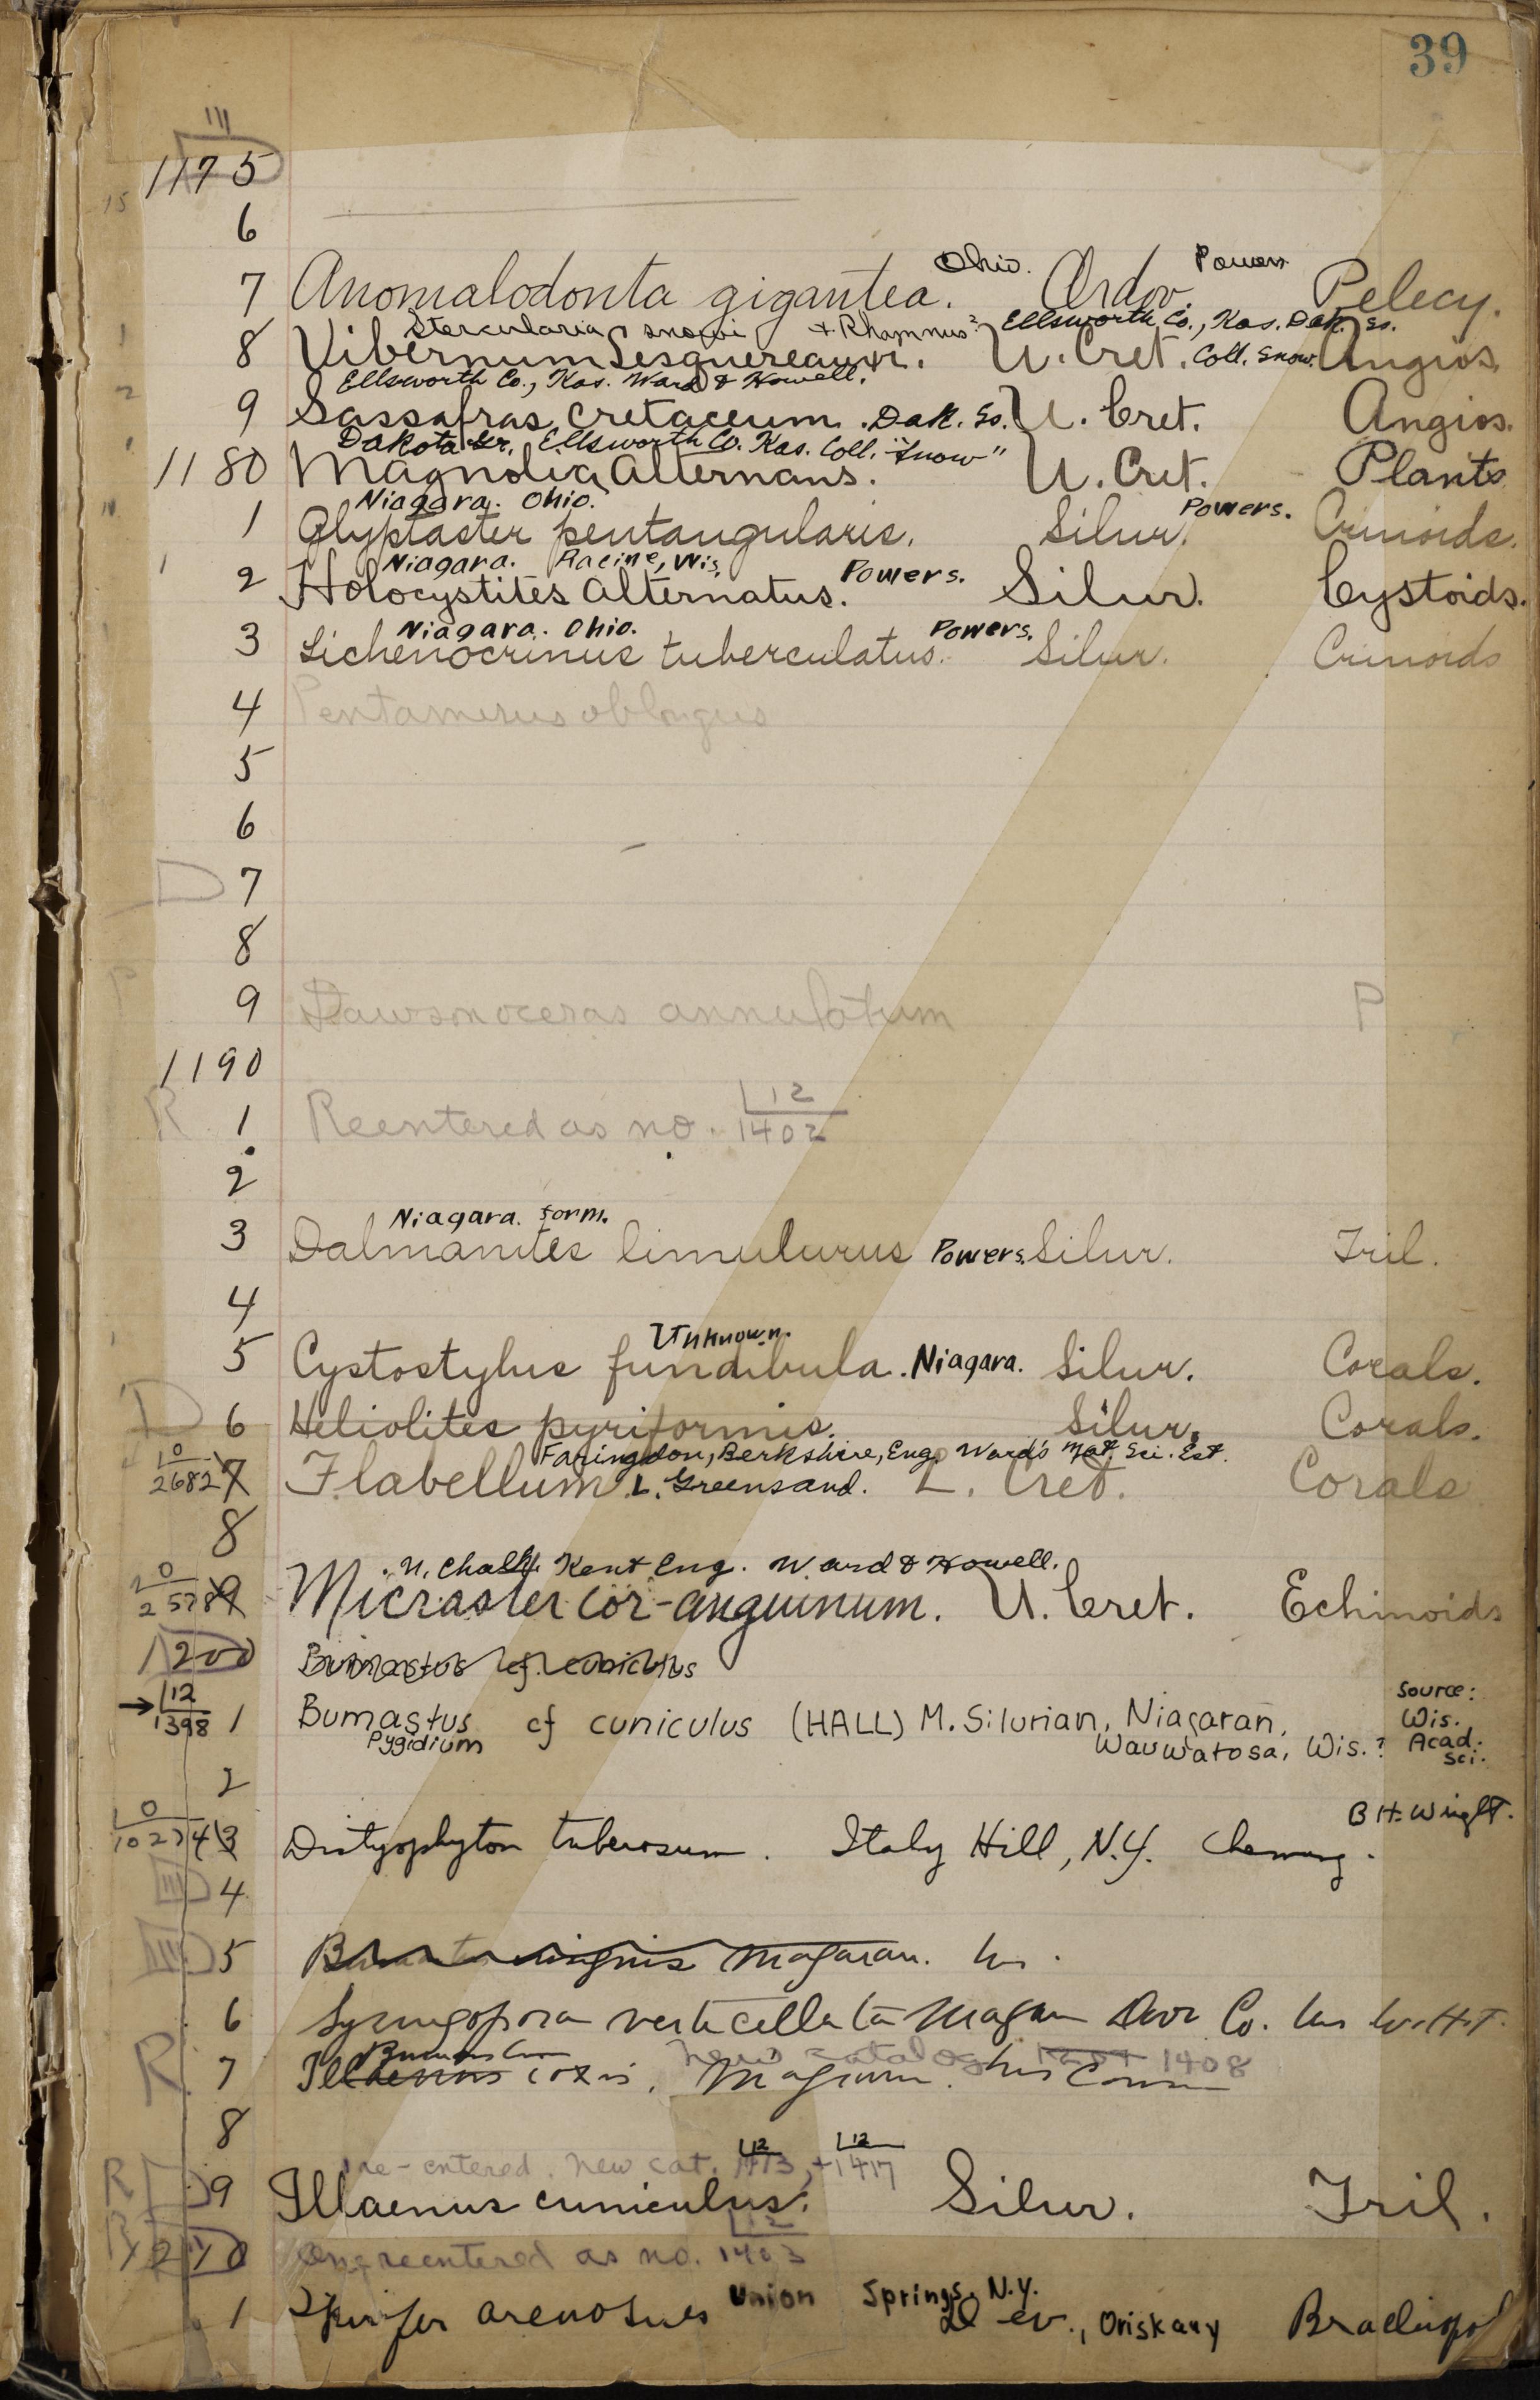 39
III
1175
15
6
Ohio. Powers
7 Anomalodonta gigantea. Ordov. Pelecy.
Stercularia snowi + Rhamnus? Ellsworth Co., Kas. Dak. Ss.
8 Vibernum Lesquereauxii. U. Cret. Coll. Snow. Angios.
Ellsworth Co., Kas. Ward & Howell.
9 Sassafras cretaceum. Dak. Ss. U. Cret. Angios.
Dakota Gr. Ellsworth Co. Kas. Coll. "Snow"
1180 Magnolia alternans. U. Cret. Plants
Niagara. Ohio. Powers.
1 Glyptaster pentangularis. Silur. Crinoids.
Niagara. Racine, Wis. Powers.
2 Holocystites alternatus. Silur. Cystoids.
Niagara. Ohio. Powers.
3 Lichenocrinus tuberculatus. Silur. Crinoids
4 Pentamerus oblongus
5
6
D 7
8
9 Dawsonoceras annulatum P
1190
12
R 1 Reentered as no. 1402
2
Niagara. form.
3 Dalmanites limulurus Powers. Silur. Tril.
4
Unknown.
5 Cystostylus fundibula. Niagara. Silur. Corals.
D 6 Heliolites pyriformis. Silur. Corals.
0 Faringdon, Berkshire, Eng. Ward's Nat. Sci. Est.
2682 7 Flabellum L. Greensand. L. Cret. Corals
8
0 U. Chalk Kent Eng. Ward & Howell.
2578 9 Micraster cor-anguinum. U. Cret. Echinoids
1200 Bumastus cf. cuniculus
→ 12 Source:
1398 1 Bumastus cf cuniculus (HALL) M. Silurian, Niagaran, Wis.
Pygidium Wauwatosa, Wis.? Acad. Sci.
2
0 B H. Wright.
10274 3 Dictyophyton tuberosum. Italy Hill, N.Y. Chemung.
III D 4
III D 5 insignis Niagaran. Wis.
6 Syringopora verticellata Niagaran Door Co. Wis W.H.T.
Bumastus New catalog 1408
R 7 Illaenus ioxus. Niagaran. Wis
8
12 12
re-entered. New cat. 1413, +1417
R D 9 Illaenus cuniculus. Silur. Tril.
12
1210 reentered as no. 1403
Union Springs, N.Y.
1 Spirifer arenosus Dev., Oriskany Brachiopod